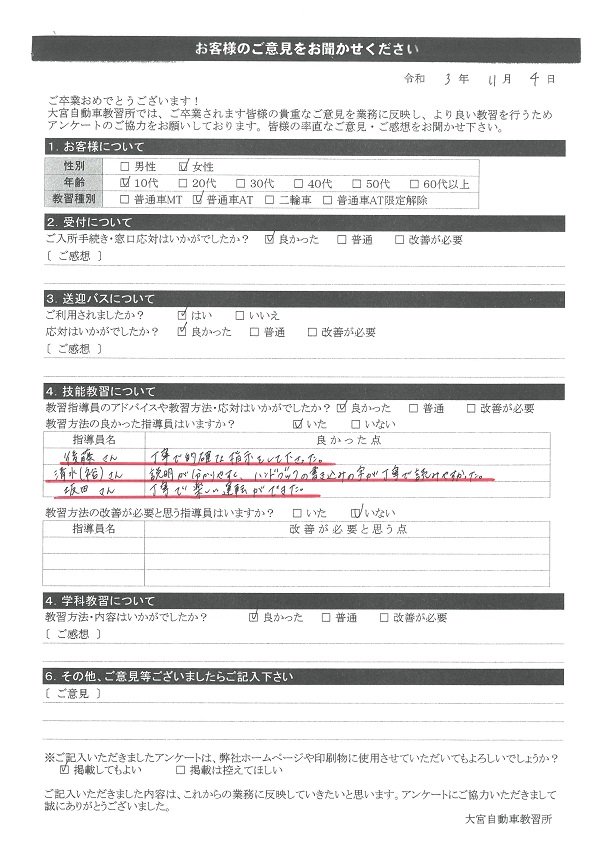 お客様のご意見をお聞かせください
令和 3 年 11 月 4 日
ご卒業おめでとうございます！
大宮自動車教習所では、ご卒業されます皆様の貴重なご意見を業務に反映し、より良い教習を行うため
アンケートのご協力をお願いしております。皆様の率直なご意見・ご感想をお聞かせ下さい。
1. お客様について
性別 □ 男性 ☑ 女性
年齢 ☑ 10代 □ 20代 □ 30代 □ 40代 □ 50代 □ 60代以上
教習種別 □ 普通車MT ☑ 普通車AT □ 二輪車 □ 普通車AT限定解除
2. 受付について
ご入所手続き・窓口応対はいかがでしたか？ ☑ 良かった □ 普通 □ 改善が必要
〔 ご感想 〕
3. 送迎バスについて
ご利用されましたか？ ☑ はい □ いいえ
応対はいかがでしたか？ ☑ 良かった □ 普通 □ 改善が必要
〔 ご感想 〕
4. 技能教習について
教習指導員のアドバイスや教習方法・応対はいかがでしたか？ ☑ 良かった □ 普通 □ 改善が必要
教習方法の良かった指導員はいますか？ ☑ いた □ いない
指導員名 良かった点
後藤さん 丁寧で的確な指示をして下さった。
清水(裕)さん 説明が分かりやすく、ハンドブックの書き込みの字が丁寧で読みやすかった。
坂田さん 丁寧で楽しい運転ができた。
教習方法の改善が必要と思う指導員はいますか？ □ いた ☑ いない
指導員名 改善が必要と思う点
4. 学科教習について
教習方法・内容はいかがでしたか？ ☑ 良かった □ 普通 □ 改善が必要
〔 ご感想 〕
6. その他、ご意見等ございましたらご記入下さい
〔 ご意見 〕
※ご記入いただきましたアンケートは、弊社ホームページや印刷物に使用させていただいてもよろしいでしょうか？
☑ 掲載してもよい □ 掲載は控えてほしい
ご記入いただきました内容は、これからの業務に反映していきたいと思います。アンケートにご協力いただきまして
誠にありがとうございました。
大宮自動車教習所